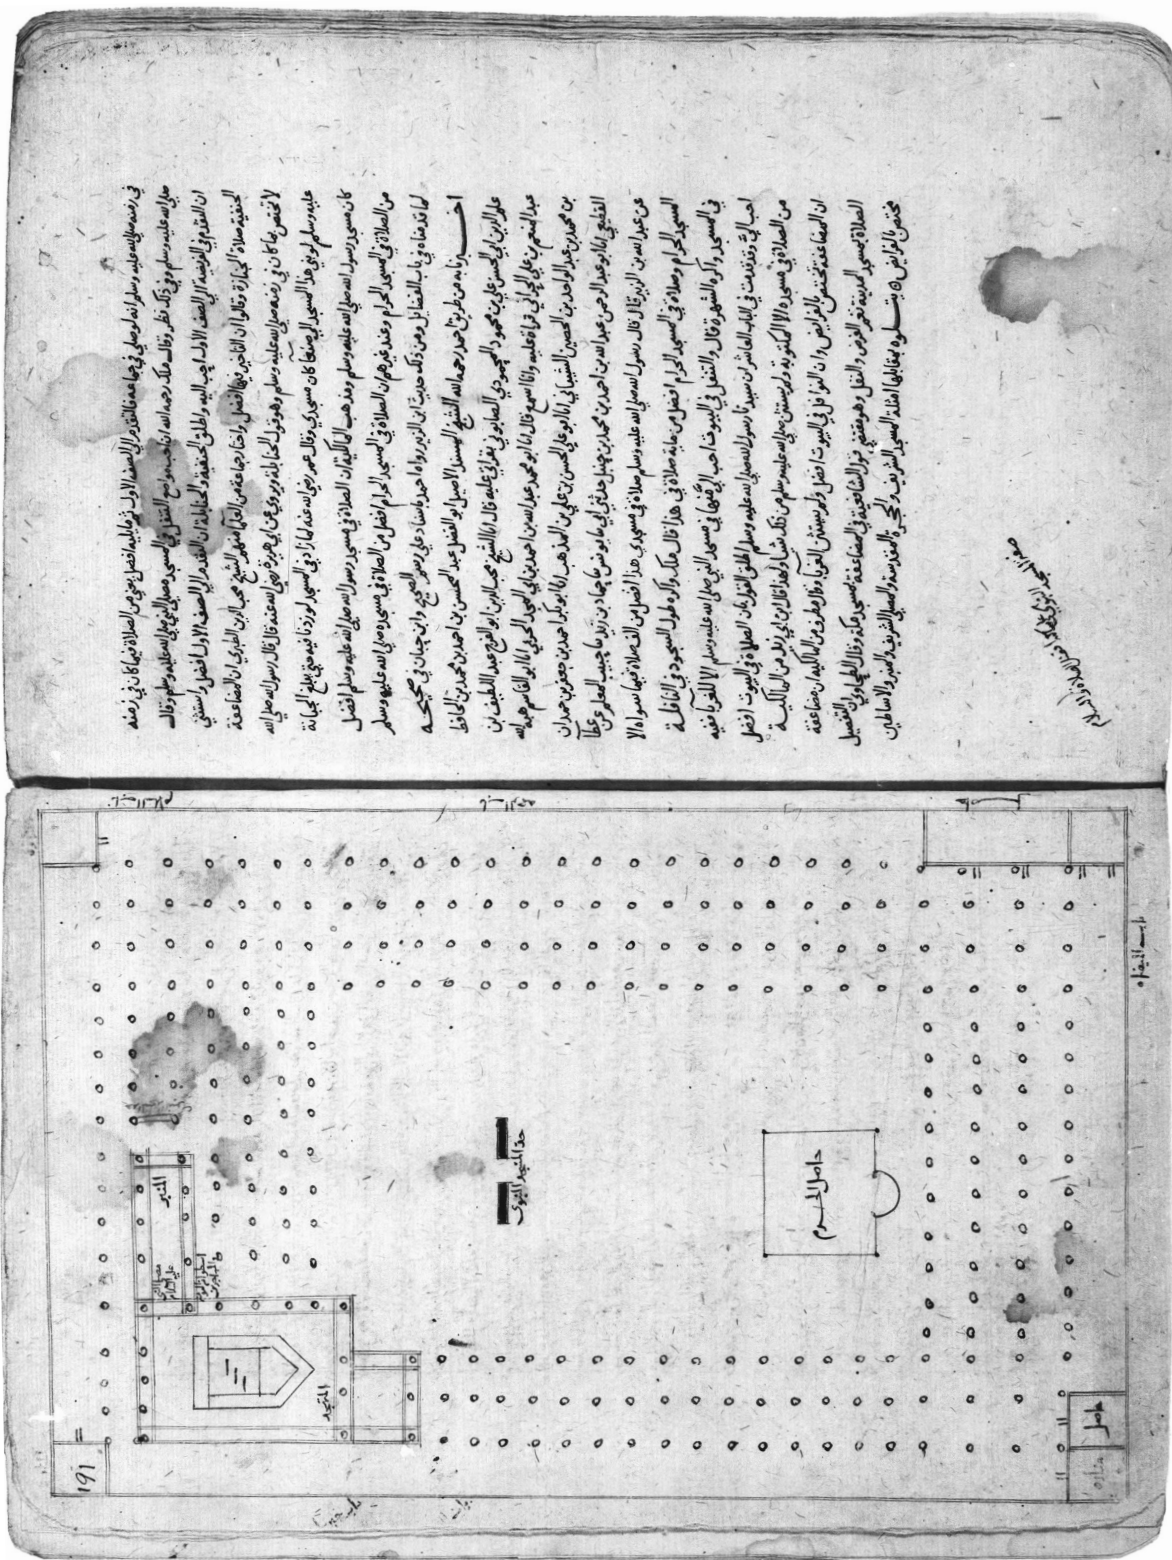 في زمنه صلى الله عليه وسلم انه لو صلى في جماعة فالتقدم الى الصف الاول ثم ما يليه افضل من الصلاة فيما كان في زمنه
صلى الله عليه وسلم وفي ذلك نظر وقال ملك رحمه الله التنفل في المسجد مصلى النبي صلى الله عليه وسلم وقال
ان التقدم في الفريضة الى الصف الاول احب اليه واطلق الحنفية والحنابلة ان التقدم الى الصف الاول افضل واستثنى
الحنفية صلاة الجنازة وقالوا ان التاخير فيها افضل واختار جماعة من العلما منهم الشيخ محب الدين الطبري ان المضاعفة
لا تختص بما كان في زمنه صلى الله عليه وسلم وهو قول الحنابلة وروي عن ابي هريرة رضي الله عنه قال قال رسول الله صلى الله
عليه وسلم لو بني هذا المسجد الى صنعا كان مسجدي وقال عمر رضي الله عنه لما زاد في المسجد لو زدنا فيه حتى بلغ الجبانة
كان مسجد رسول الله صلى الله عليه وسلم ومذهب المالكية ان الصلاة في مسجد رسول الله صلى الله عليه وسلم افضل
من الصلاة في المسجد الحرام وعند غيرهم ان الصلاة في المسجد الحرام افضل من الصلاة في مسجده صلى الله عليه وسلم
لما قدمناه في باب الفضايل ومن ذلك حديث ابن الزبير رواه احمد باسناد على رسم الصحيح وابن حبان في صحيحه
اخبرنا به من طريق احمد رحمه الله الشيخ المسند الاصيل ابو الفضل عبد المحسن بن احمد بن محمد بن الحافظ
علم الدين ابي الحسن علي بن محمود المحمودي الصابوني بقراتي عليه قال انا الشيخ محب الدين ابو الفرج عبد اللطيف ابن
عبد المنعم بن علي الحراني قراءة عليه وانا اسمع قال انا ابو محمد عبد الله بن احمد بن ابي المجد الحربي انا ابو القاسم هبة الله
بن محمد بن عبد الواحد بن الحصين الشيباني انا ابو علي الحسن بن علي بن المذهب انا ابو بكر احمد بن جعفر بن حمدان
القطيعي انا ابو عبد الرحمن عبد الله بن احمد بن محمد بن حنبل حدثني ابي ثنا يونس ثنا حماد بن زيد ثنا حبيب المعلم عن عطا
عن عبد الله بن الزبير قال قال رسول الله صلى الله عليه وسلم صلاة في مسجدي هذا افضل من الف صلاة فيما سواه الا
المسجد الحرام وصلاة في المسجد الحرام افضل من ماية صلاة في هذا قال ملك واكره طول السجود في النافلة
في المسجد واكره الشهرة قال والتنفل في البيوت احب الي منها في مسجد النبي صلى الله عليه وسلم الا للغربا ففيه
احب الي وقد قدمت في الباب العاشر ان سيدنا رسول الله صلى الله عليه وسلم اطلق القول بان الصلاة في البيوت افضل
من الصلاة في مسجده الا المكتوبة ولم يستثن صلى الله عليه وسلم من ذلك شيا ولهذا قال ابن ابي زيد من المالكية
ان المضاعفة تختص بالفرايض وان النوافل في البيوت افضل ولم يستثن الغربا وقال مطرف من المالكية ان مضاعفة
الصلاة بمسجد المدينة تعم الفرض والنفل وهو مقتضى قول الشافعية في المضاعفة بمسجد مكة وقال الطحاوي ان التفضيل
مختص بالفرايض ه يتلوه بمقابلها امثلة المسجد الشريف والحجرة المقدسة والمصلى الشريف والمنبر والاساطين
صفة المسجد النبوي على ساكنه افضل الصلاة والسلام
المنبر
مصلى النبي
عليه السلام
المتهجد
حد المسجد النبوي
حاصل الحرم
حاصل
منارة
١٩١